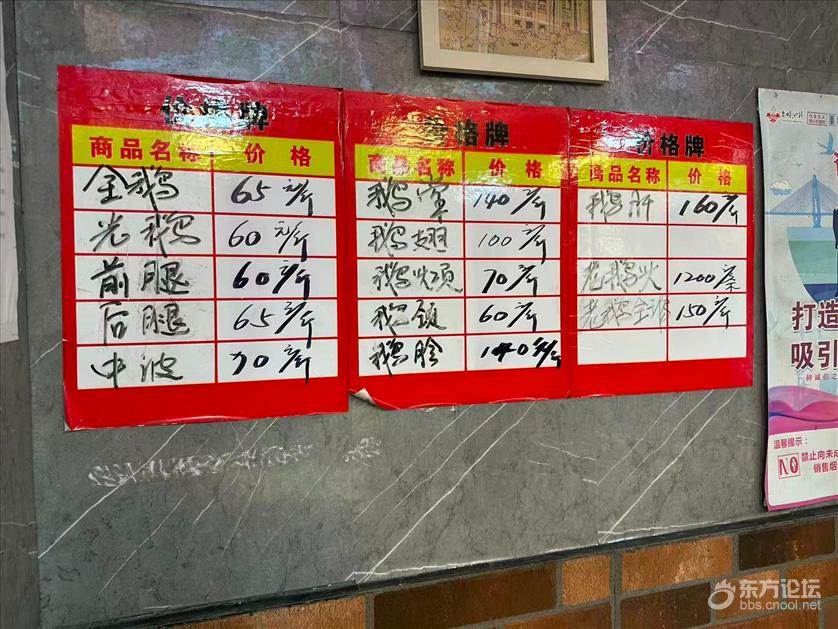 价格牌
商品名称 价格
全鹅 65元/斤
光鹅 60元/斤
前腿 60元/斤
后腿 65元/斤
中波 70元/斤
价格牌
商品名称 价格
鹅掌 140元/斤
鹅翅 100元/斤
70元/斤
鹅颈 60元/斤
140元/斤
价格牌
商品名称 价格
鹅肝 160元/斤
老鹅头 1200/条
老鹅全 150元/斤
打造
吸引
温馨提示：
NO 禁止向未成
销售烟
东方论坛
bbs.cnool.net